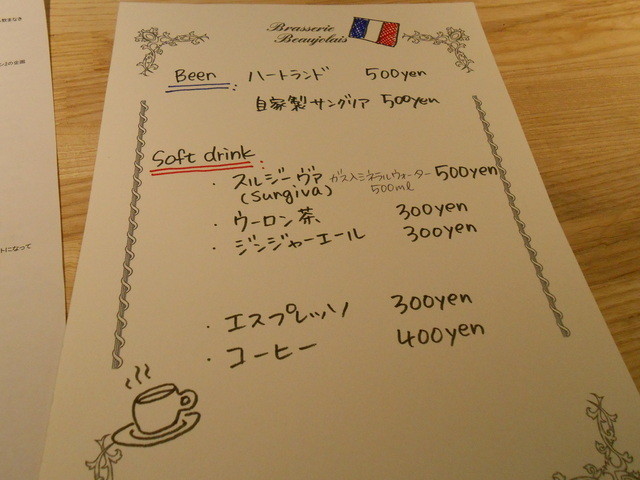 Brasserie
Beaujolais
Beer : ハートランド 500yen
自家製サングリア 500yen
Soft drink :
・スルジーヴァ ガス入ミネラルウォーター 500yen
(Surgiva) 500ml
・ウーロン茶 300yen
・ジンジャーエール 300yen
・エスプレッソ 300yen
・コーヒー 400yen